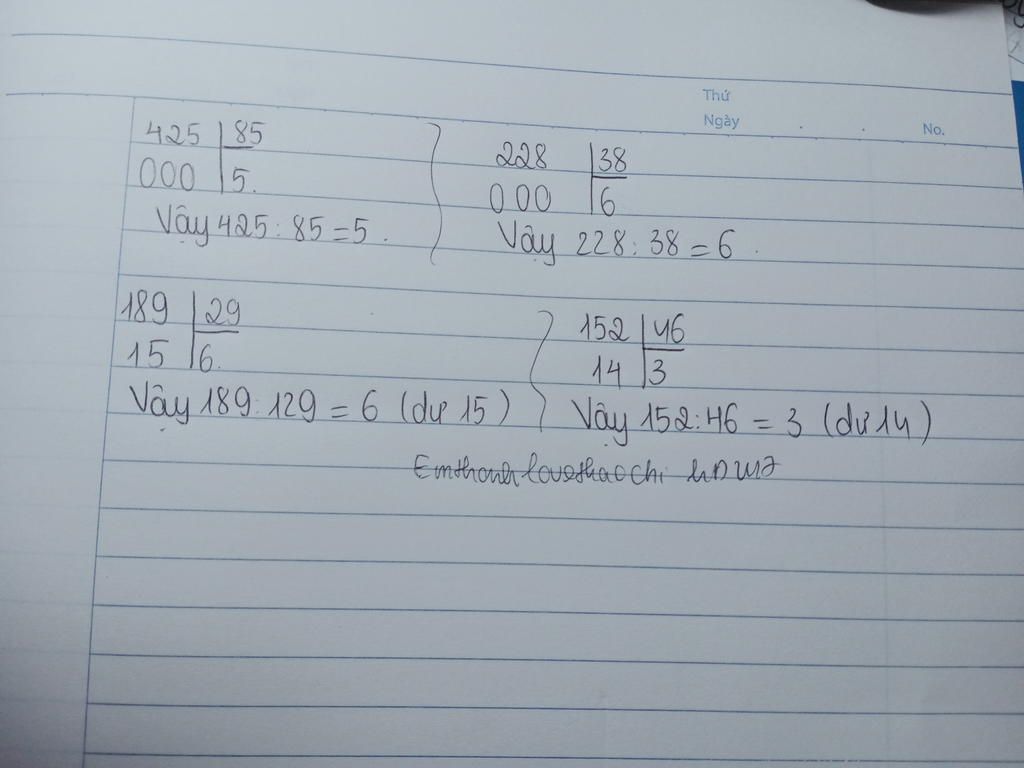 Thứ
Ngày . . No.
425 85
000 5.
Vậy 425 : 85 = 5 .
228 38
000 6
Vậy 228 : 38 = 6 .
189 29
15 6.
Vậy 189 : 129 = 6 (dư 15)
152 46
14 3
Vậy 152 : 46 = 3 (dư 14)